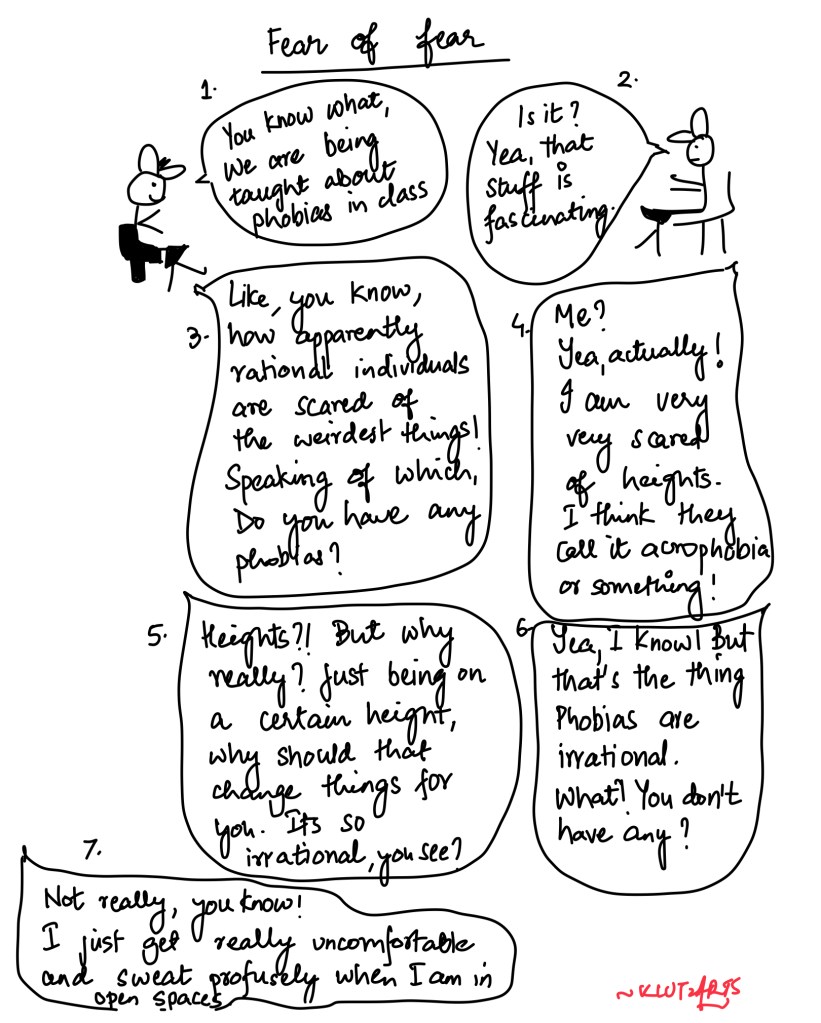 Fear of fear
1.
You know what,
we are being
taught about
phobias in class
2.
Is it?
Yea, that
stuff is
fascinating.
3.
Like, you know,
how apparently
rational individuals
are scared of
the weirdest things!
Speaking of which,
Do you have any
phobias?
4.
Me?
Yea, actually!
I am very
very scared
of heights.
I think they
call it acrophobia
or something!
5.
Heights?! But why
really? Just being on
a certain height,
why should that
change things for
you. It's so
irrational, you see?
6.
Yea, I know! But
that's the thing
Phobias are
irrational.
What! You don't
have any?
7.
Not really, you know!
I just get really uncomfortable
and sweat profusely when I am in
open spaces